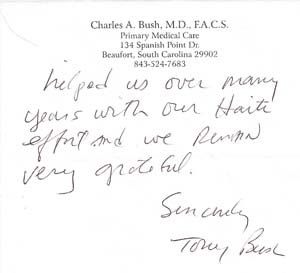 Charles A. Bush, M.D., F.A.C.S.
Primary Medical Care
134 Spanish Point Dr.
Beaufort, South Carolina 29902
843-524-7683
helped us over many
years with our Haiti
effort and we remain
very grateful.
Sincerely
Tony Bush